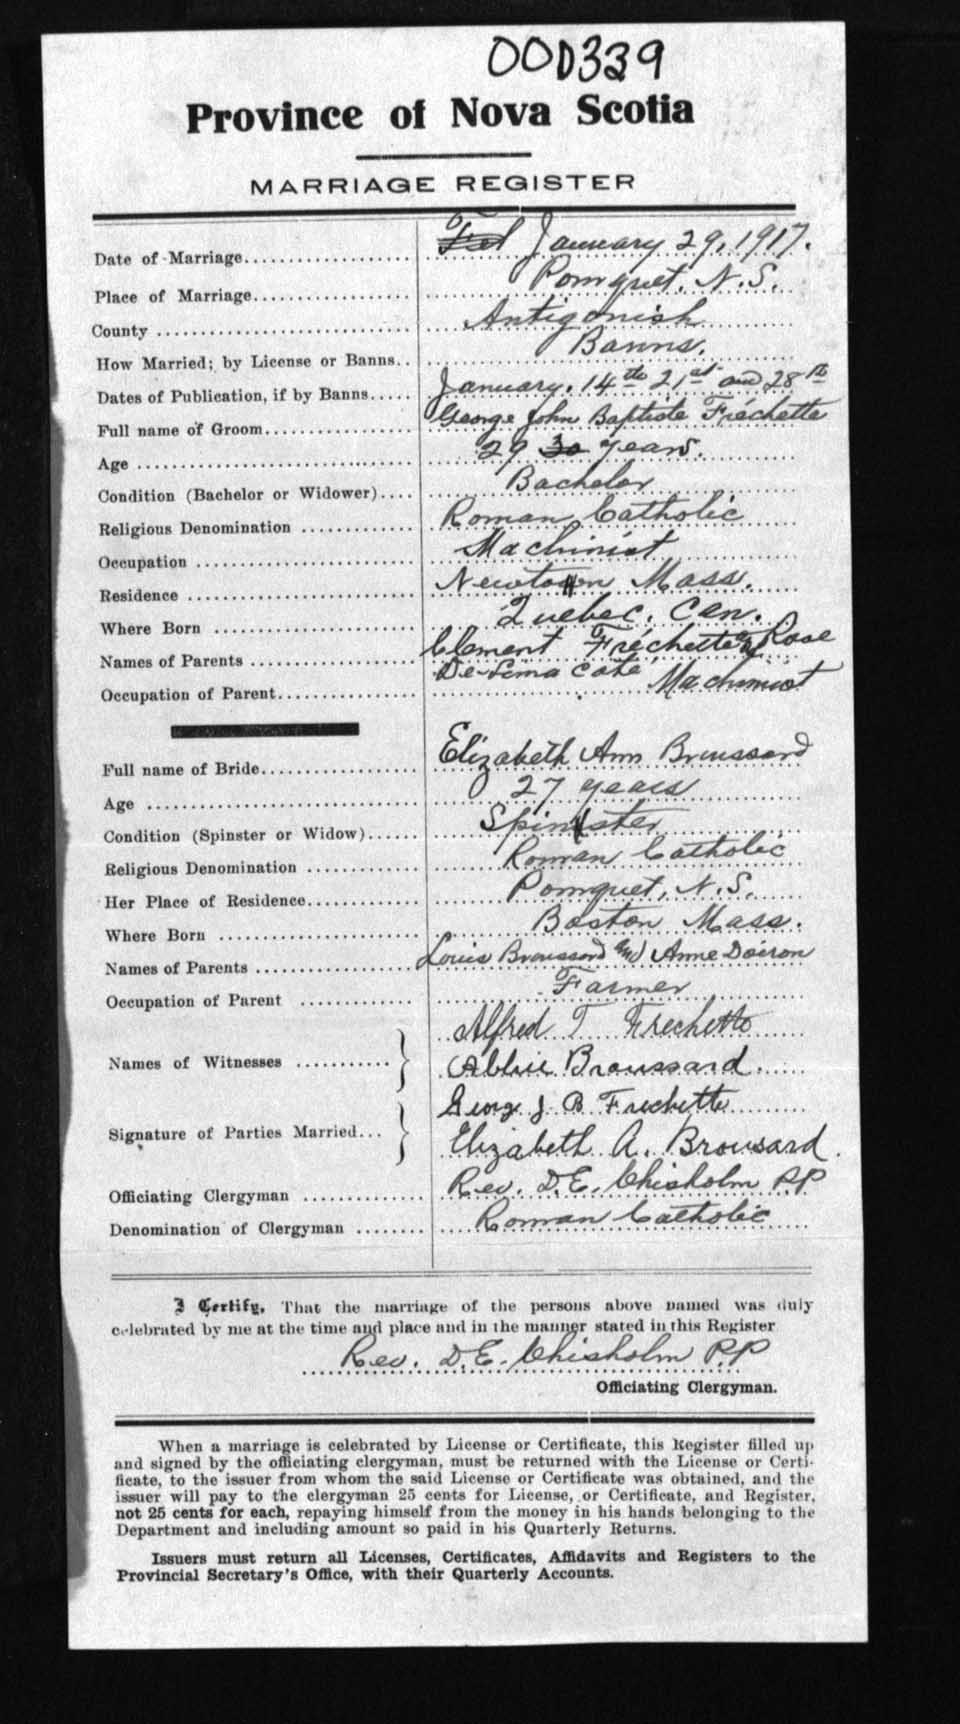 000339
Province of Nova Scotia
MARRIAGE REGISTER
Date of Marriage.................. Feb January 29, 1917.
Place of Marriage................. Pomquet, N.S.
County ............................. Antigonish
How Married; by License or Banns.. Banns.
Dates of Publication, if by Banns..... January. 14th 21st and 28th
Full name of Groom................. George John Baptiste Fréchette
Age ................................ 29 30 years.
Condition (Bachelor or Widower).... Bachelor
Religious Denomination ............. Roman Catholic
Occupation ......................... Machinist
Residence .......................... Newtown Mass.
Where Born ....................... Quebec. Can.
Names of Parents ................... Clement Fréchette & Rose
Occupation of Parent................ De-Lima Coté Machinist
Full name of Bride................... Elizabeth Ann Broussard
Age ................................ 27 years
Condition (Spinster or Widow)...... Spinster
Religious Denomination ............ Roman Catholic
Her Place of Residence............ Pomquet, N.S.
Where Born ....................... Boston Mass.
Names of Parents .................. Louis Broussard and Anne Doiron
Occupation of Parent ............. Farmer
Names of Witnesses ........... } Alfred T Frechette
Abbie Broussard.
Signature of Parties Married... } George J B Frechette
Elizabeth A. Brousard.
Officiating Clergyman ............. Rev. D.E. Chisholm P.P
Denomination of Clergyman ........ Roman Catholic
I Certify, That the marriage of the persons above named was duly
celebrated by me at the time and place and in the manner stated in this Register
Rev. D.E. Chisholm P.P
Officiating Clergyman.
When a marriage is celebrated by License or Certificate, this Register filled up
and signed by the officiating clergyman, must be returned with the License or Certi-
ficate, to the issuer from whom the said License or Certificate was obtained, and the
issuer will pay to the clergyman 25 cents for License, or Certificate, and Register,
not 25 cents for each, repaying himself from the money in his hands belonging to the
Department and including amount so paid in his Quarterly Returns.
Issuers must return all Licenses, Certificates, Affidavits and Registers to the
Provincial Secretary's Office, with their Quarterly Accounts.